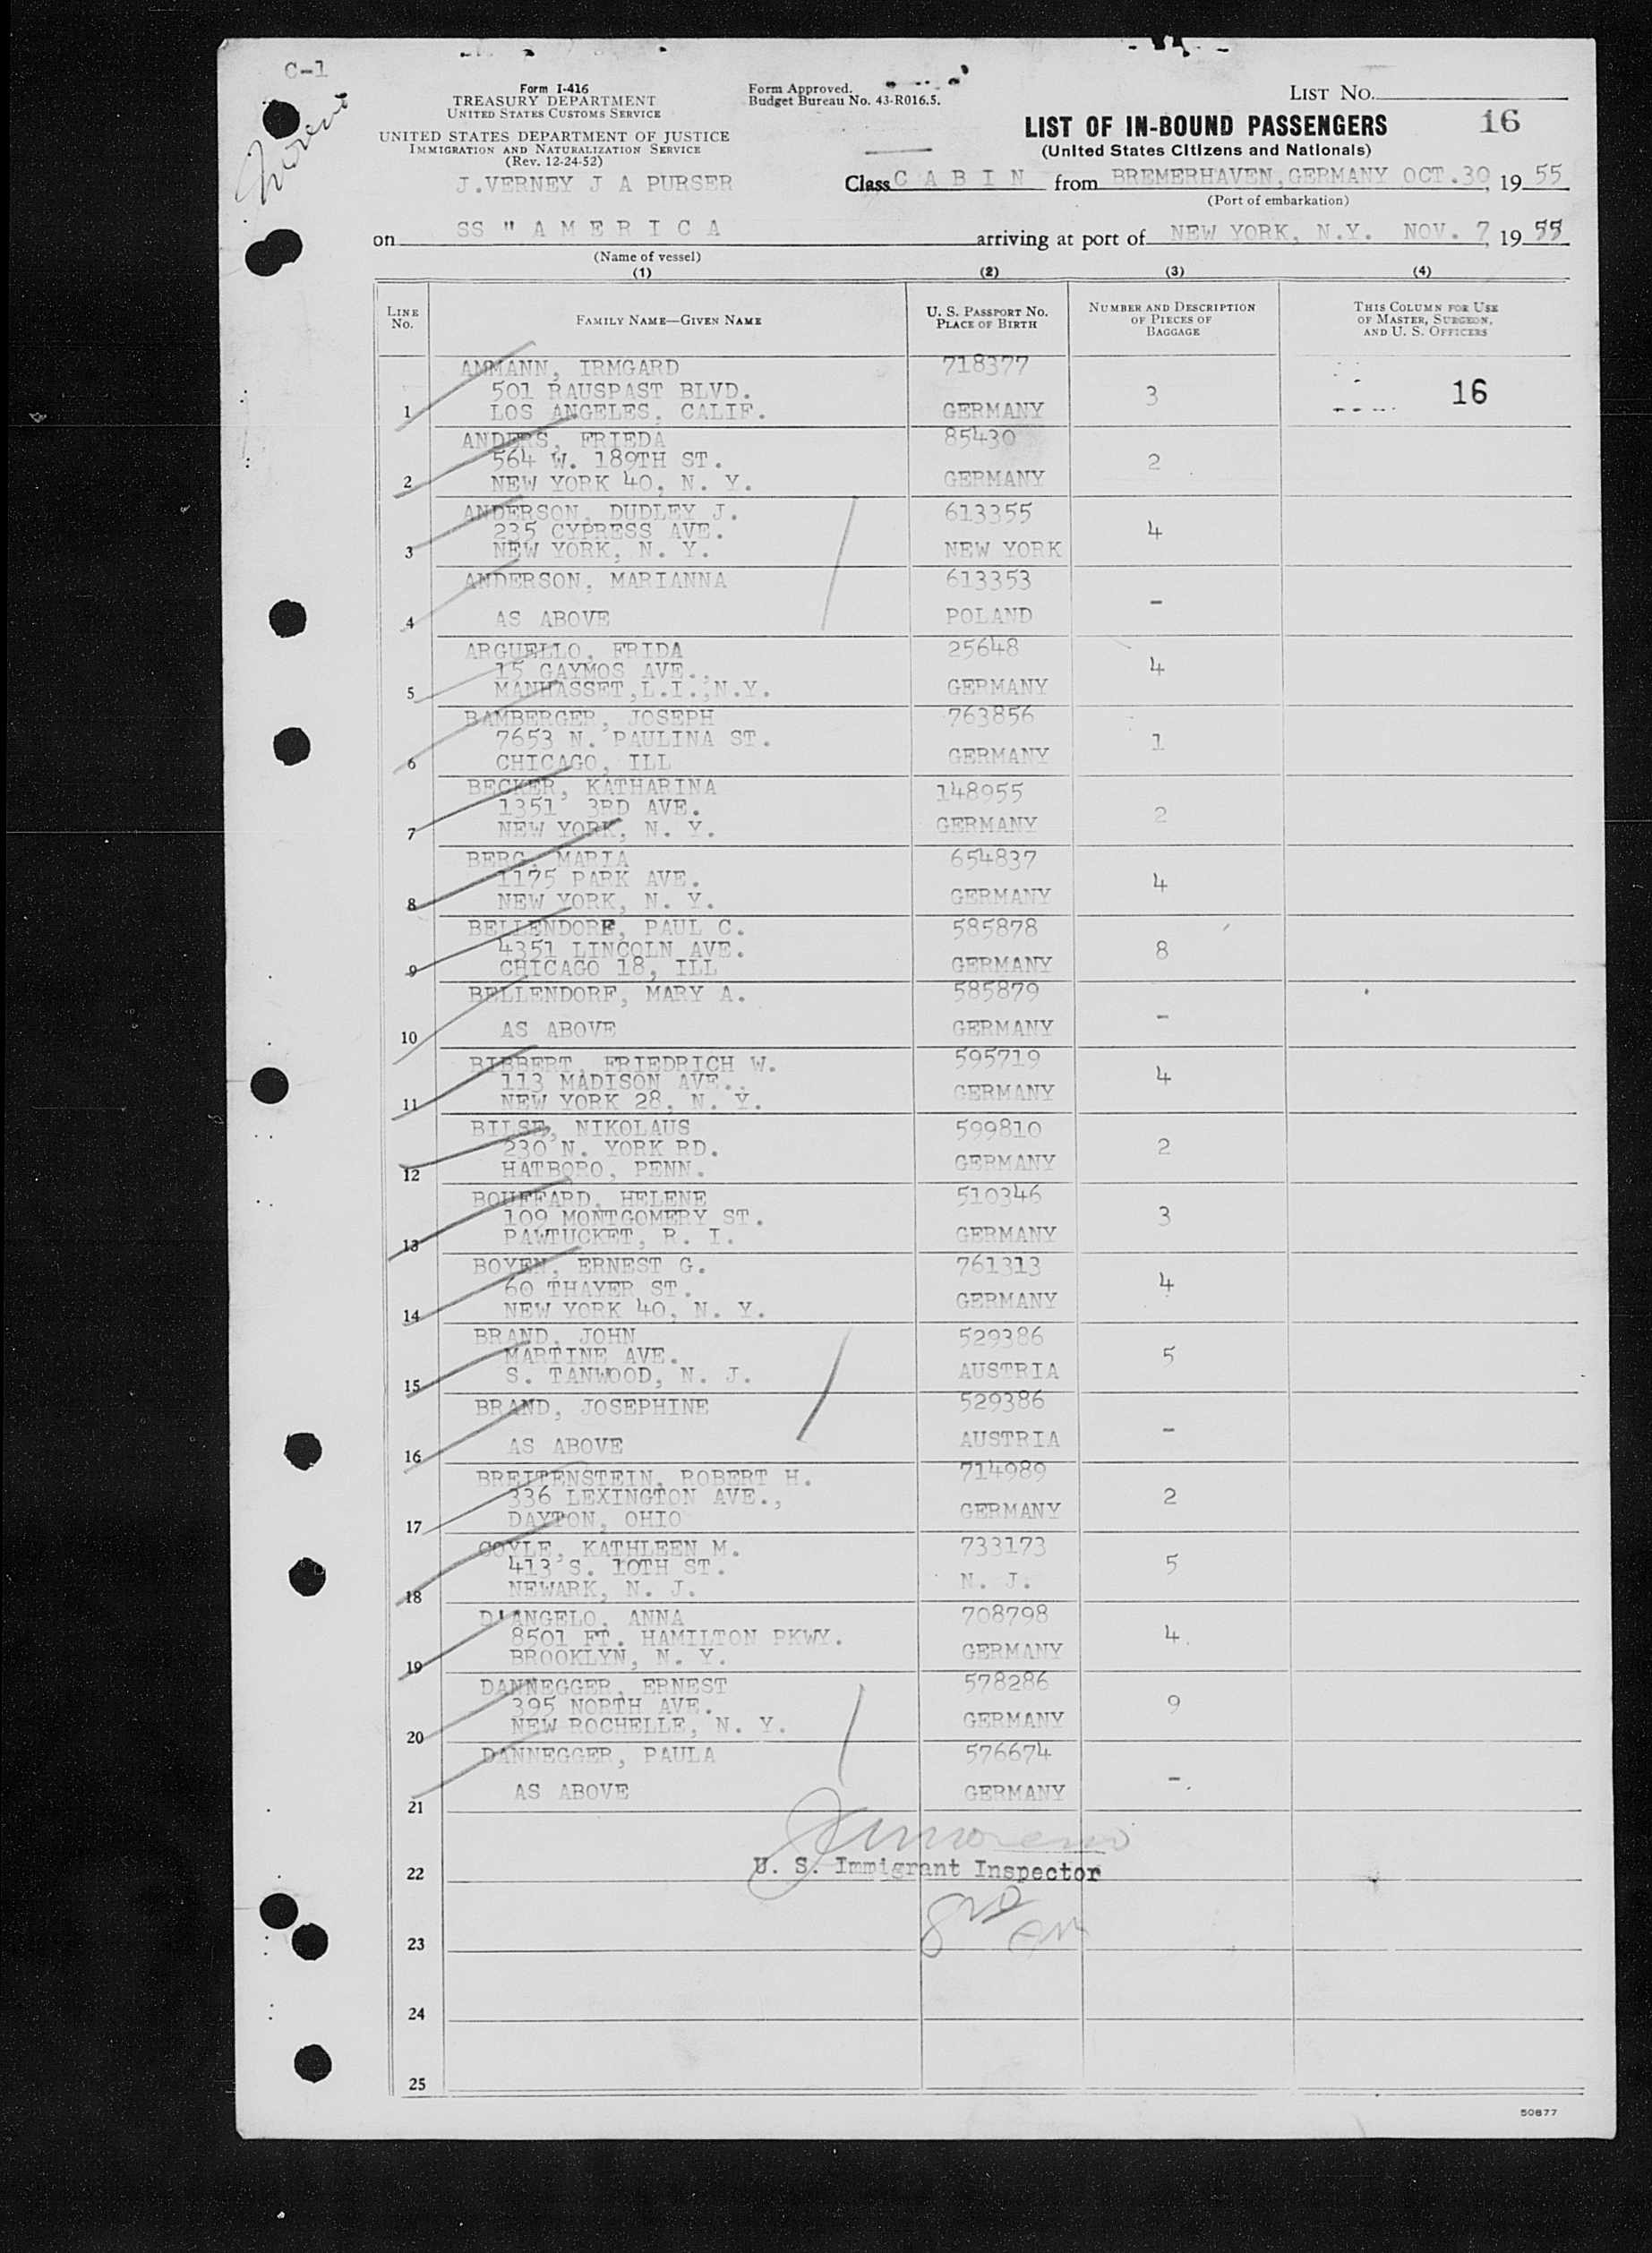 C-1
Form I-416
TREASURY DEPARTMENT
UNITED STATES CUSTOMS SERVICE
UNITED STATES DEPARTMENT OF JUSTICE
IMMIGRATION AND NATURALIZATION SERVICE
(Rev. 12-24-52)
Form Approved.
Budget Bureau No. 43-R016.5.
LIST NO.
16
LIST OF IN-BOUND PASSENGERS
(United States Citizens and Nationals)
J.VERNEY J A PURSER
Class CABIN from BREMERHAVEN, GERMANY OCT.30, 1955
(Port of embarkation)
on SS "AMERICA arriving at port of NEW YORK, N.Y. NOV. 7, 1955
(Name of vessel)
(1) (2) (3) (4)
LINE NO. FAMILY NAME—GIVEN NAME U. S. PASSPORT NO. PLACE OF BIRTH NUMBER AND DESCRIPTION OF PIECES OF BAGGAGE THIS COLUMN FOR USE OF MASTER, SURGEON, AND U. S. OFFICERS
AMMANN, IRMGARD 718377
501 RAUSPAST BLVD. 3 16
1 LOS ANGELES, CALIF. GERMANY
ANDERS, FRIEDA 85430
564 W. 189TH ST. 2
2 NEW YORK 40, N. Y. GERMANY
ANDERSON, DUDLEY J. 613355
235 CYPRESS AVE. 4
3 NEW YORK, N. Y. NEW YORK
ANDERSON, MARIANNA 613353
4 AS ABOVE POLAND -
ARGUELLO, FRIDA 25648
15 GAYMOS AVE., 4
5 MANHASSET,L.I.,N.Y. GERMANY
BAMBERGER, JOSEPH 763856
7653 N. PAULINA ST. 1
6 CHICAGO, ILL GERMANY
BECKER, KATHARINA 148955
1351 3RD AVE. 2
7 NEW YORK, N. Y. GERMANY
BERG, MARIA 654837
1175 PARK AVE. 4
8 NEW YORK, N. Y. GERMANY
BELLENDORF, PAUL C. 585878
4351 LINCOLN AVE. 8
9 CHICAGO 18, ILL GERMANY
BELLENDORF, MARY A. 585879
10 AS ABOVE GERMANY -
BIBBERT, FRIEDRICH W. 595719
113 MADISON AVE., 4
11 NEW YORK 28, N. Y. GERMANY
BILSE, NIKOLAUS 599810
230 N. YORK RD. 2
12 HATBORO, PENN. GERMANY
BOUFFARD, HELENE 510346
109 MONTGOMERY ST. 3
13 PAWTUCKET, R. I. GERMANY
BOYEN, ERNEST G. 761313
60 THAYER ST. 4
14 NEW YORK 40, N. Y. GERMANY
BRAND, JOHN 529386
MARTINE AVE. 5
15 S. TANWOOD, N. J. AUSTRIA
BRAND, JOSEPHINE 529386
16 AS ABOVE AUSTRIA -
BREITENSTEIN, ROBERT H. 714989
336 LEXINGTON AVE., 2
17 DAYTON, OHIO GERMANY
COYLE, KATHLEEN M. 733173
413 S. 10TH ST. 5
18 NEWARK, N. J. N. J.
D'ANGELO, ANNA 708798
8501 FT. HAMILTON PKWY. 4
19 BROOKLYN, N. Y. GERMANY
DANNEGGER, ERNEST 578286
395 NORTH AVE. 9
20 NEW ROCHELLE, N. Y. GERMANY
DANNEGGER, PAULA 576674
AS ABOVE GERMANY -
21
22 U. S. Immigrant Inspector
23
24
25
50877